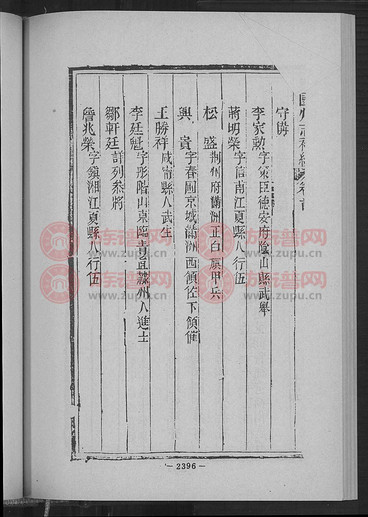 守備
李家勲字策臣德安府隂山縣武舉
蔣明榮字信甫江夏縣人行伍
松盛荆州府滿洲正白旗甲兵
興貴字春圃京城滿洲西領佐下領催
王勝祥咸甯縣人武生
李廷魁字彤階山東臨青直隸州人進士
鄒軒廷詳列叅將
詹兆榮字鎮湘江夏縣人行伍
-2396-
族谱网
www.zupu.cn
族谱网
www.zupu.cn